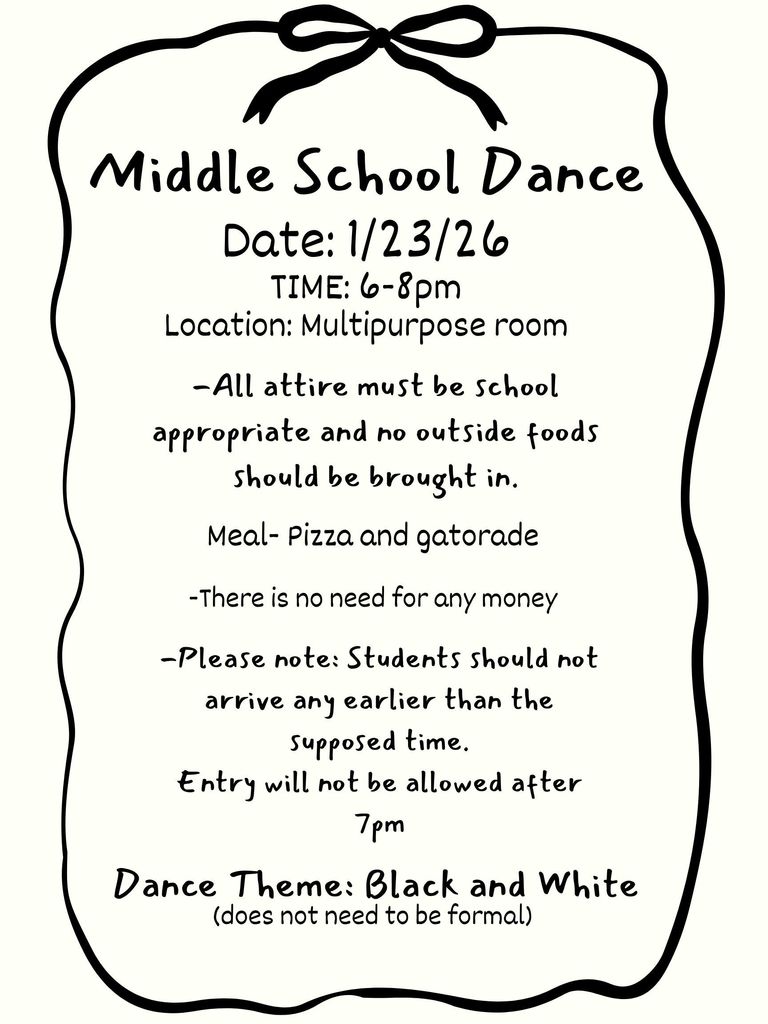 Middle School Dance
Date: 1/23/26
TIME: 6-8pm
Location: Multipurpose room
-All attire must be school
appropriate and no outside foods
should be brought in.
Meal- Pizza and gatorade
-There is no need for any money
-Please note: Students should not
arrive any earlier than the
supposed time.
Entry will not be allowed after
7pm
Dance Theme: Black and White
(does not need to be formal)